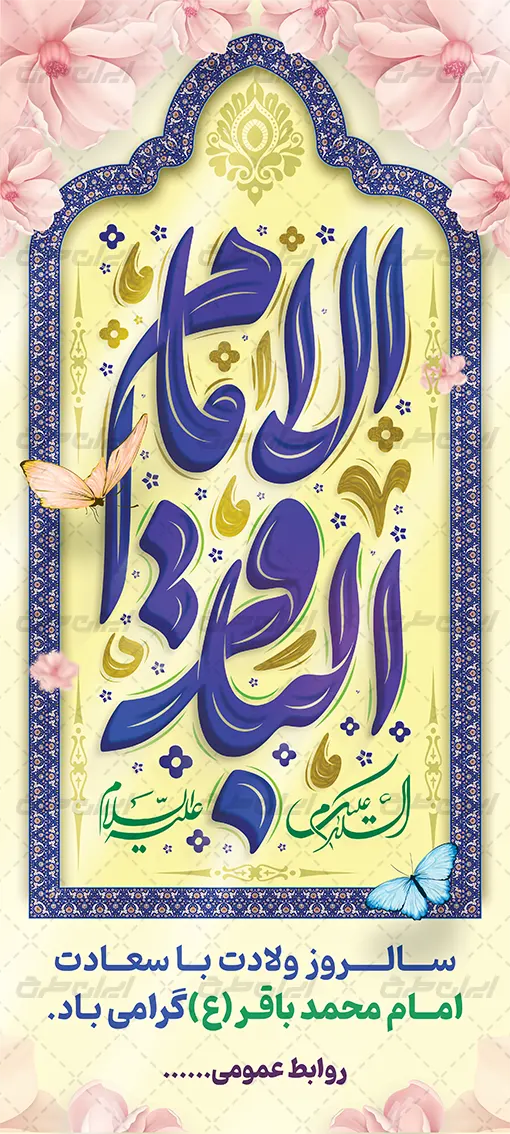 الامام
الباقر
السلام علیکم
علیه السلام
سالروز ولادت با سعادت
امام محمد باقر (ع) گرامی باد.
روابط عمومی......
ایران طرح